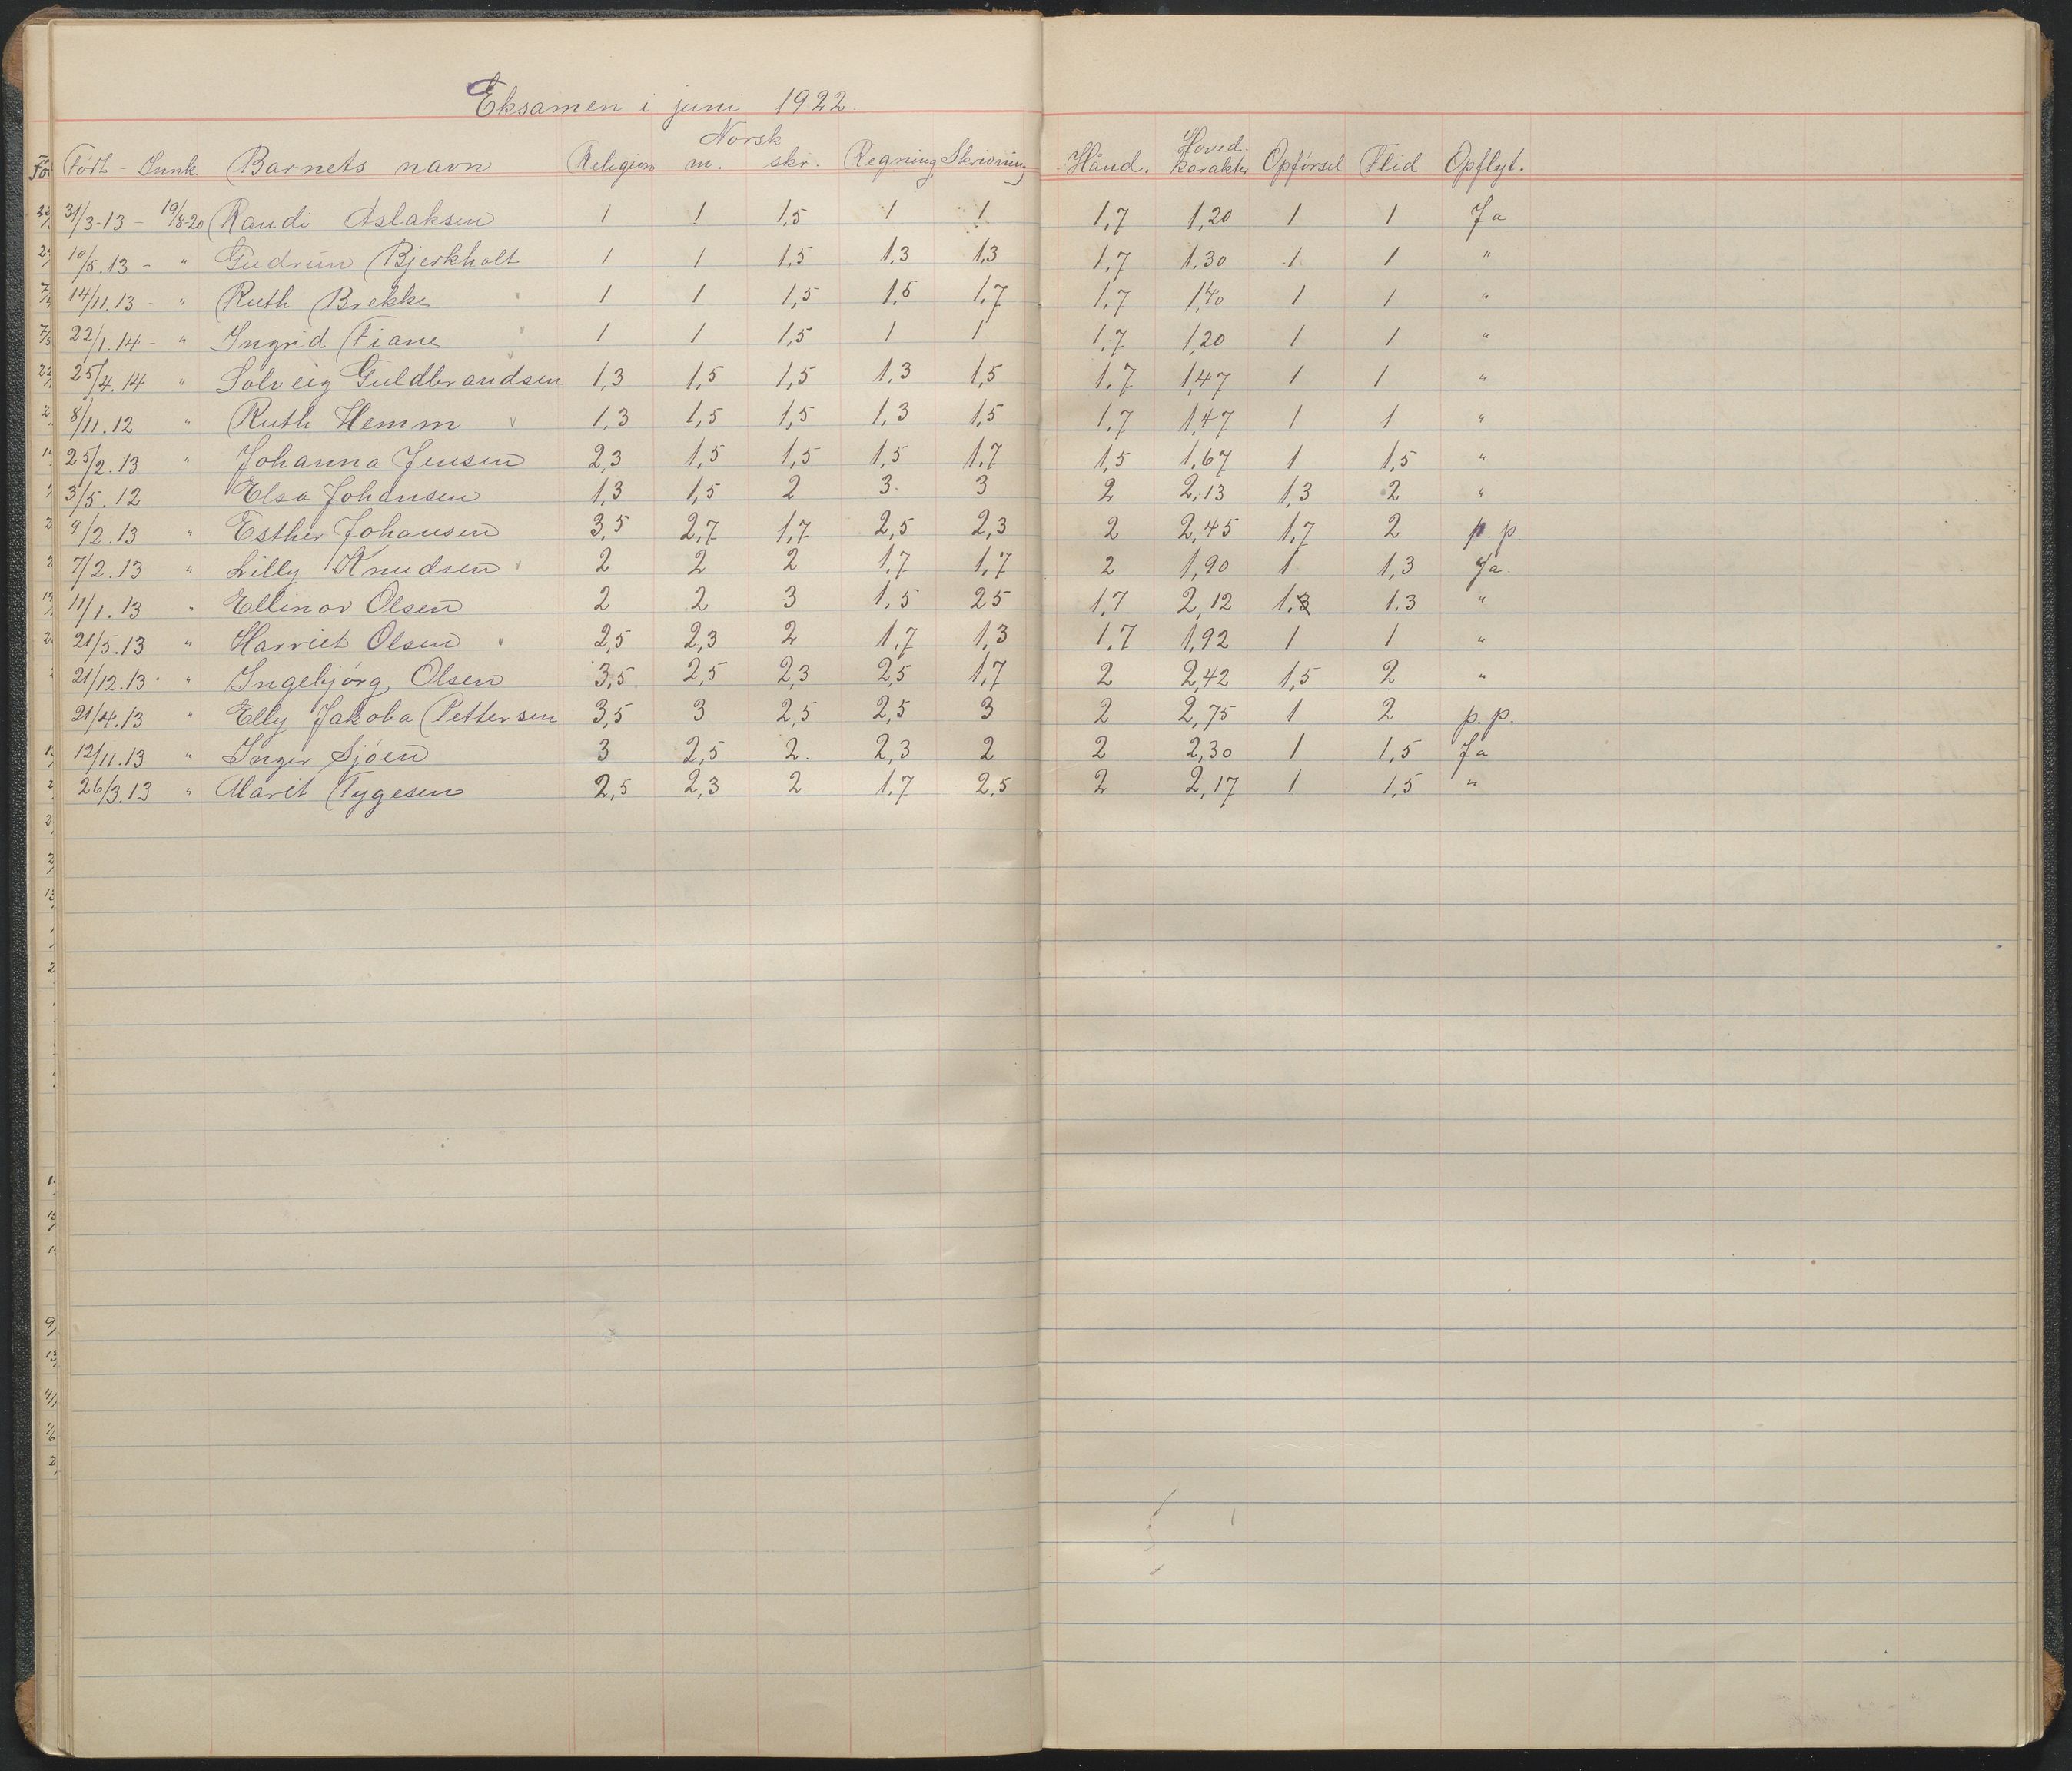 Eksamen i juni 1922.
Norsk
Født - Innk. Barnets navn Religion m. skr. Regning Skrivning Hånd. Hoved-karakter Opførsel Flid Opflyt.
31/3-13 - 19/8-20 Randi Aslaksen 1 1 1,5 1 1 1,7 1,20 1 1 Ja
10/5.13 - " Gudrun Bjerkholt 1 1 1,5 1,3 1,3 1,7 1,30 1 1 "
14/11.13 - " Ruth Brekke 1 1 1,5 1,5 1,7 1,7 1,40 1 1 "
22/1.14 - " Ingrid Fiane 1 1 1,5 1 1 1,7 1,20 1 1 "
25/4.14 " Solveig Guldbrandsen 1,3 1,5 1,5 1,3 1,5 1,7 1,47 1 1 "
8/11.12 " Ruth Hemm 1,3 1,5 1,5 1,3 1,5 1,7 1,47 1 1 "
25/2.13 " Johanna Jensen 2,3 1,5 1,5 1,5 1,7 1,5 1,67 1 1,5 "
3/5.12 Elsa Johansen 1,3 1,5 2 3 3 2 2,13 1,3 2 "
9/2.13 " Esther Johansen 3,5 2,7 1,7 2,5 2,3 2 2,45 1,7 2 p.p.
7/2.13 " Lilly Knudsen 2 2 2 1,7 1,7 2 1,90 1 1,3 Ja.
11/1.13 " Ellinor Olsen 2 2 3 1,5 25 1,7 2,12 1,3 1,3 "
21/5.13 " Harriet Olsen 2,5 2,3 2 1,7 1,3 1,7 1,92 1 1 "
21/12.13 " Ingebjørg Olsen 3,5 2,5 2,3 2,5 1,7 2 2,42 1,5 2 "
21/4.13 " Elly Jakoba Pettersen 3,5 3 2,5 2,5 3 2 2,75 1 2 p.p.
12/11.13 " Inger Sjøen 3 2,5 2. 2,3 2 2 2,30 1 1,5 Ja
26/3.13 " Marit Tygesen 2,5 2,3 2 1,7 2,5 2 2,17 1 1,5 "